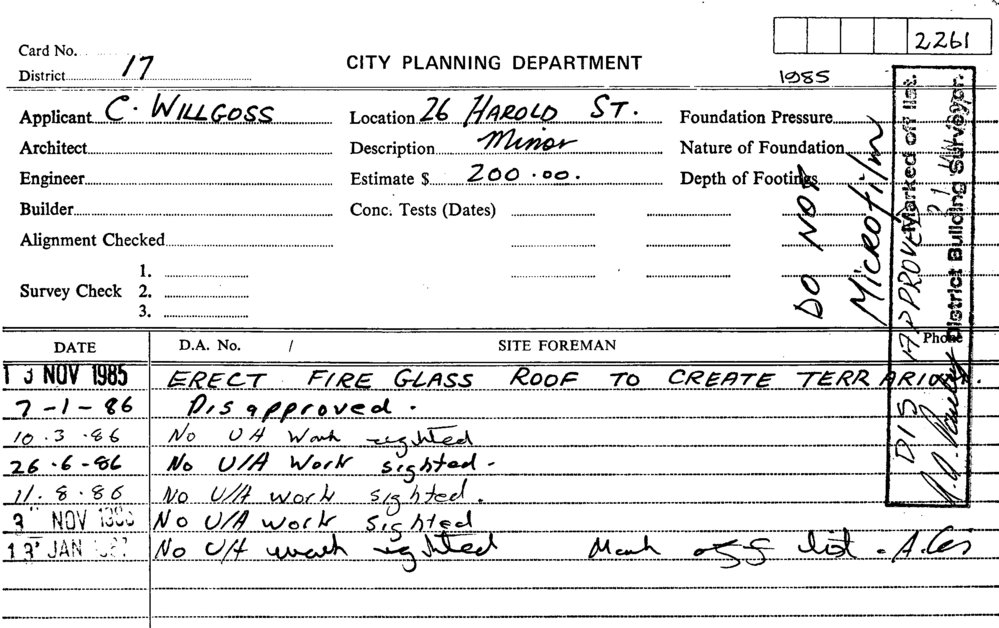 2261
Card No.
District 17
CITY PLANNING DEPARTMENT
1985
Applicant C. WILLGOSS
Location 26 HAROLD ST.
Foundation Pressure
Architect
Description Minor
Nature of Foundation
Engineer
Estimate $ 200.00.
Depth of Footings
Builder
Conc. Tests (Dates)
Alignment Checked
Survey Check
1.
2.
3.
DO NOT
Microfilm
Marked off list.
DISAPPROVED
District Building Surveyor.
DATE
D.A. No. /
SITE FOREMAN
Phone
13 NOV 1985 ERECT FIRE GLASS ROOF TO CREATE TERRARIUM.
7-1-86 Disapproved.
10.3.86 No U/A Work sighted
26.6-86 No U/A Work sighted.
11.8.86 No U/A work sighted.
3 NOV 1986 No U/A work sighted
13 JAN No U/A work sighted Mark off list.